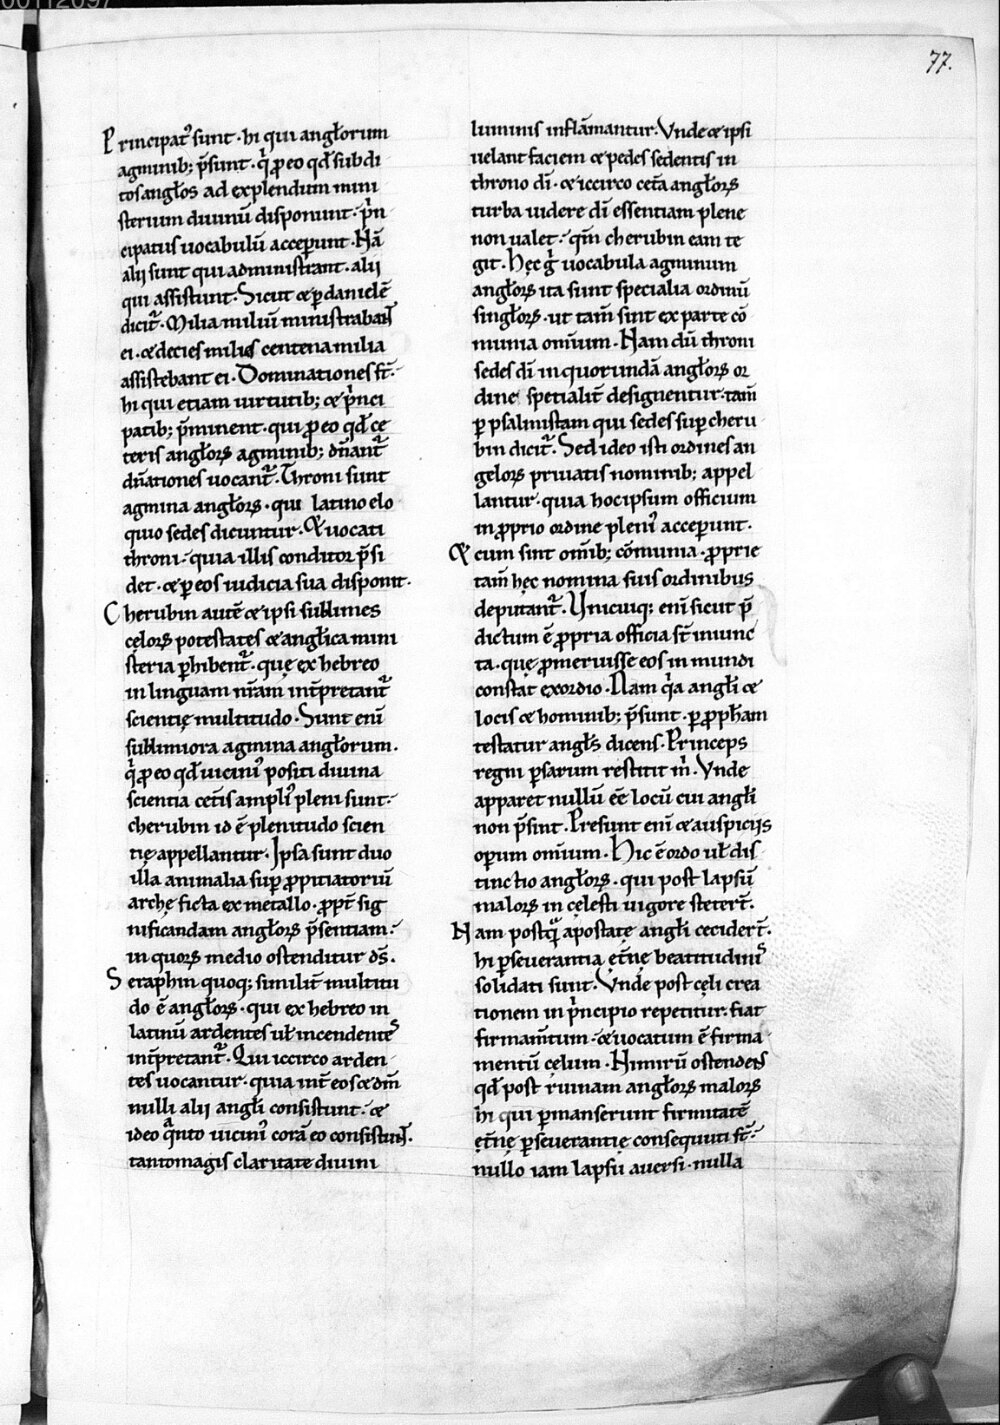 77.
Principat᷒ sunt · hi qui angło̵rum
agminib; p̄sunt · q̇ ꝓ eo qđ subdi
tos angłos ad explendum mini
sterium diuinū disponunt · pͥn
cipatus uocabulū acceꝑunt · Nā
alii sunt qui administrant · alii
qui assistunt · Sicut & ꝑ danielē
dicit᷑ · Milia miliū ministrabant
ei · & decies milies centena milia
assistebant ei · Dominationes st̄ ·
hi qui etiam uirtutib; & pͥnci
patib; p̄minent · qui ꝓ eo qđ ce
teris angłoꝝ agminib; dn̄ant᷑
dn̄ationes uocant᷑ · Throni sunt
agmina angłoꝝ · qui latino elo
quio sedes dicuntur · & uocati
throni · quia illis conditor p̄si
det · & ꝑ eos iudicia sua disponit ·
Cherubin autē & ipsi sublimes
cęloꝝ potestates & angłica mini
steria ꝑhibent᷑ · quę ex hebreo
in linguam nr̄am int̄pretant᷑
scientię multitudo · Sunt eni̅
sublimiora agmina angłorum ·
q̇ ꝓ eo qđ uicini᷒ positi diuina
scientia cet̄is ampli᷒ pleni sunt ·
cherubin id ē plenitudo scien
tię appellantur · Ipsa sunt duo
illa animalia suꝑ ꝓpitiatoriū
archę ficta ex metallo · ꝓpt̄ sig
nificandam angłoꝝ p̄sentiam ·
in quoꝝ medio ostenditur ds̄ ·
Seraphin quoq; similit̄ multitu
do ē angłoꝝ · qui ex hebreo in
latinū ardentes ut incendentes
int̄pretant᷑ · Qui iccirco arden
tes uocantur · quia int̄ eos & dm̄
nulli alii angłi consistunt · &
ideo qͣnto uicini᷒ corā eo consistunt ·
tanto magis claritate diuini
luminis inflāmantur · Vnde & ipsi
uelant faciem & pedes sedentis in
throno dī · & iccirco cet̄a angłoꝝ
turba uidere dī essentiam plene
non ualet · qm̄ cherubin eam te
git · Hęc g̊ uocabula agminum
angłoꝝ ita sunt specialia ordinū
singłoꝝ · ut tam̄ sint ex parte cō
munia omīum · Nam dū throni
sedes dī in quorundā angłoꝝ or
dine spetialit̄ designentur · tam̄
ꝑ psalmistam qui sedes suꝑ cheru
bin dicit᷑ · Sed ideo isti ordines an
geloꝝ priuatis nominib; appel
lantur · quia hoc ipsum officium
in ꝓprio ordine pleni᷒ acceꝑunt ·
& cum sint om̄ib; cōmunia · ꝓprie
tam̄ hęc nomina suis ordinibus
deputant᷑ · Vnicuiq; enī sicut p̄
dictum ē ꝓpria officia st̄ iniunc
ta · quę ꝓmeruisse eos in mundi
constat exordio · Nam qͥa angłi &
locis & hominib; p̄sunt · ꝑ ꝓpħam
testatur angłs dicens · Princeps
regni ꝑsarum restitit m̄ · Vnde
apparet nullū eē locū cui angłi
non p̄sint · Presunt enī & auspiciis
oꝑum omīum · Hic ē ordo uł dis
tinctio angłoꝝ · qui post lapsū
maloꝝ in cęlesti uigore stetert̄ ·
Nam postqͣ apostatę angłi cecidert̄ ·
hi ꝑseuerantia ęt̄nę beatitudinis
solidati sunt · Vnde post cęli crea
tionem in pͥncipio repetitur · fiat
firmam̄tum · & uocatum ē firma
mentū cęlum · Nimirū ostendens
qđ post ruinam angłoꝝ maloꝝ
hi qui ꝑmanserunt firmitatē
ęt̄nę ꝑseuerantię consequuti st̄ ·
nullo iam lapsu auersi · nulla